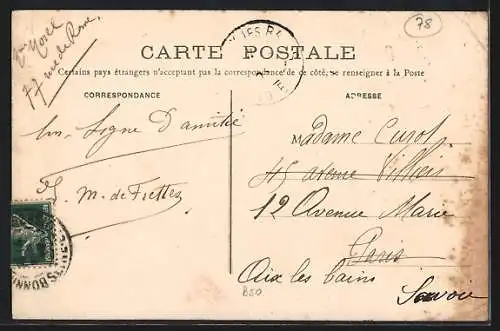 78
77 rue de Rome.
CARTE POSTALE
Certains pays étrangers n'acceptant pas la correspondance de ce côté, se renseigner à la Poste
CORRESPONDANCE
ADRESSE
Signe D'amitié
M. de
Madame
45 avenue Villiers
12 Avenue Marie
Paris
Aix les bains
Savoie
850